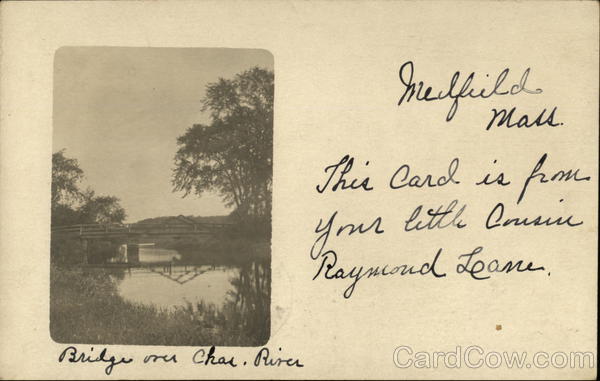 Medfield
Mass.
This Card is from
your little Cousin
Raymond Lane.
Bridge over Chas. River
CardCow.com